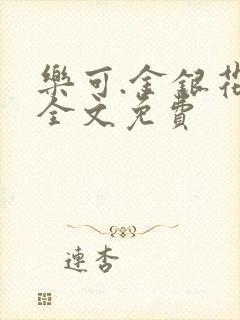 樂可.金銀花
全文免費
連杏